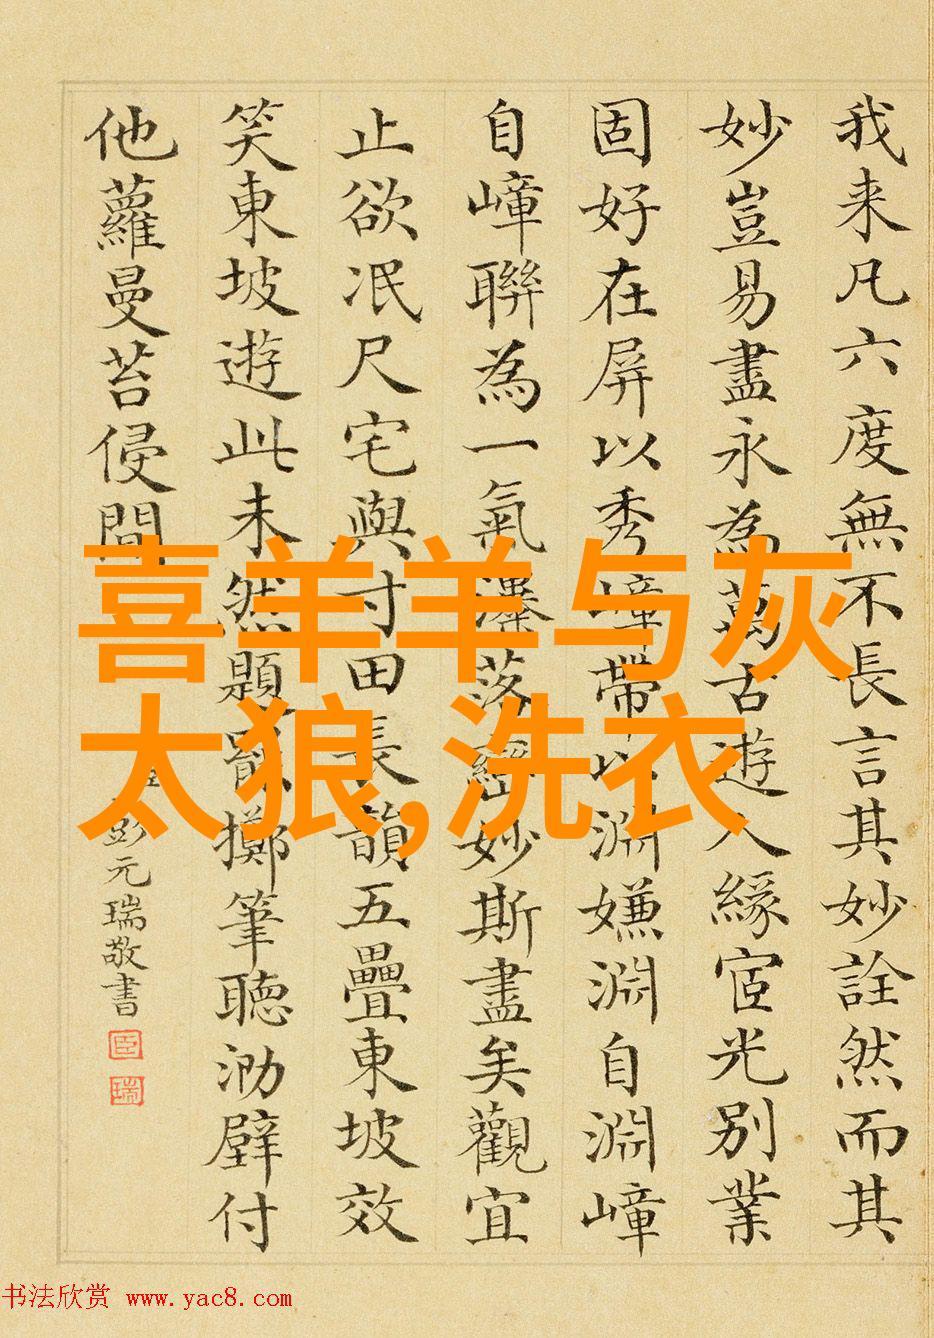 我来凡六度無不長言其妙詮然而其
妙豈易盡永為萬古遊人緣宧光別業
固好在屏以秀嶂帶以淵嫌淵自淵嶂
自嶂聯為一氣瀑落巒妙斯盡矣觀宜
止欲泯尺宅與寸田長韻五疊東坡效
笑東坡遊此未然題罷擲筆聴泐壁付
他蘿曼苔侵間
彭元瑞敬書
臣
瑞
喜羊羊与灰
太狼,洗衣
书法欣赏 www.yac8.com